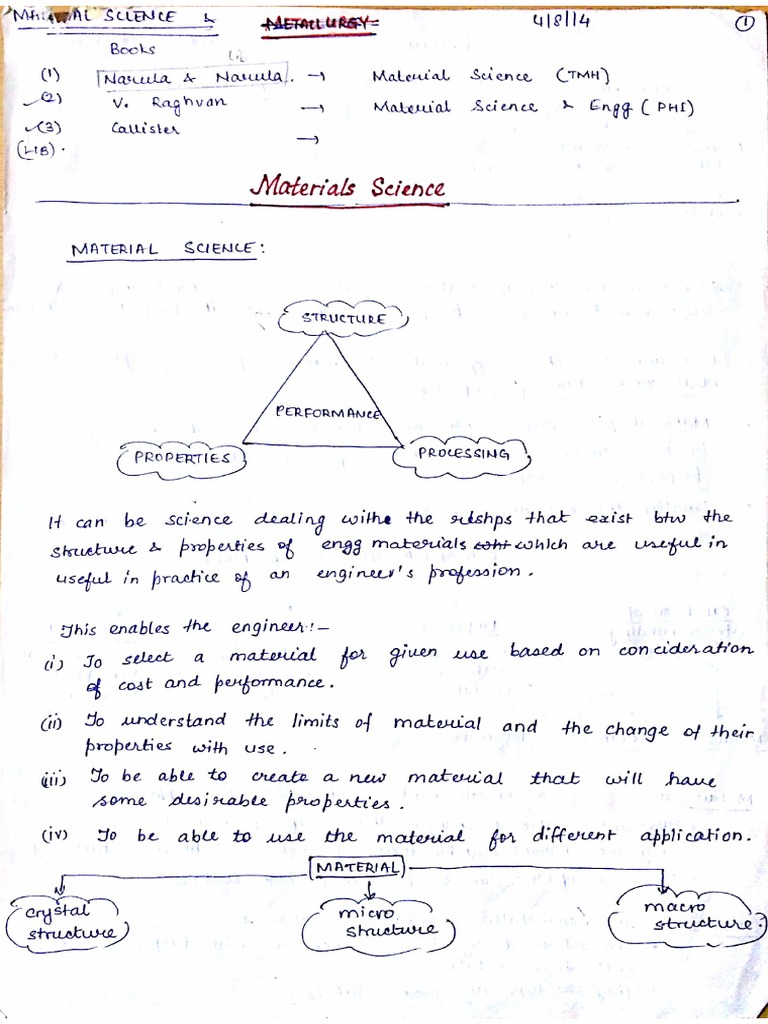 MATERIAL SCIENCE & METALLURGY 4/8/14 1
Books
(1) Narula & Narula. → Material Science (TMH)
(2) V. Raghvan → Material Science & Engg (PHI)
(3) Callister →
(LIB).
Materials Science
MATERIAL SCIENCE:
STRUCTURE
PERFORMANCE
PROPERTIES PROCESSING
It can be science dealing withe the rltshps that exist btw the
structure & properties of engg materials whi which are useful in
useful in practice of an engineer's profession.
This enables the engineer:-
(i) To select a material for given use based on concideration
of cost and performance.
(ii) To understand the limits of material and the change of their
properties with use.
(iii) To be able to create a new material that will have
some desirable properties.
(iv) To be able to use the material for different application.
MATERIAL
crystal structure
micro structure
macro structure.